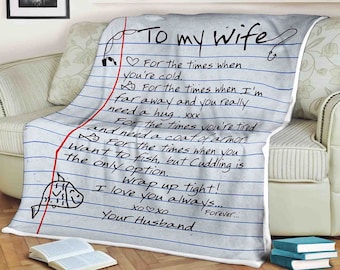 To my Wife
♡ For the times when
you're cold.
For the times when I'm
far away and you really
need a hug xxx
For the times you're tired
and need a coat of armor!
For the times when you
want to fish, but Cuddling is
the only option.
Wrap up tight!
I love you always...
Forever...
xo♡xo
Your Husband